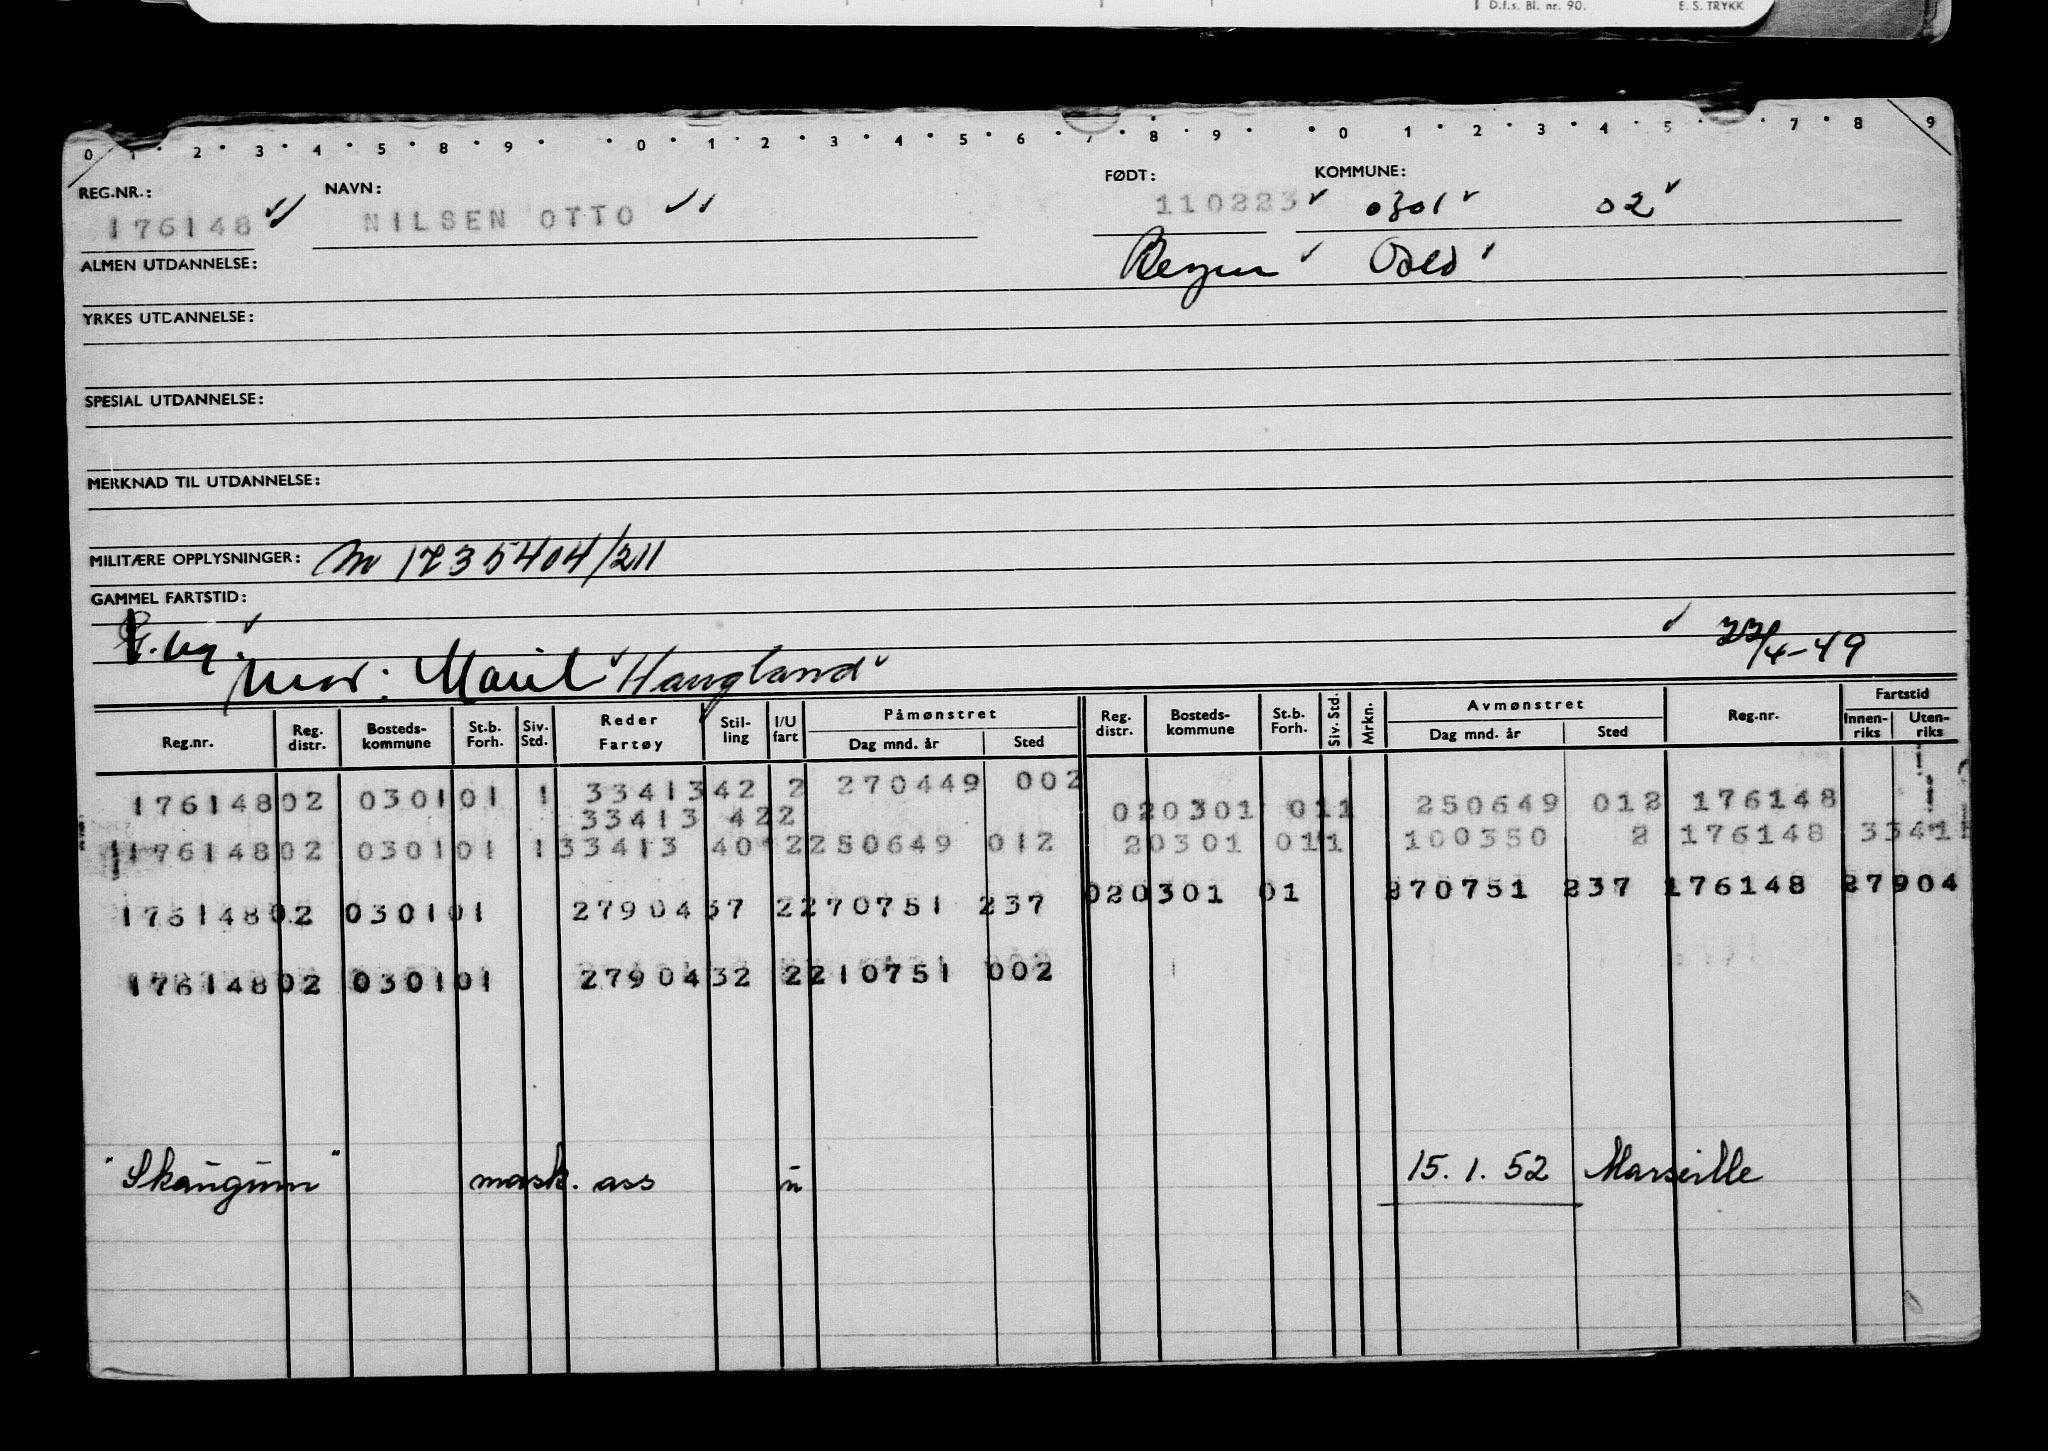 D.f.s. Bl. nr. 90. E. S. TRYKK
0 1 2 3 4 5 8 9 0 1 2 3 4 5 6 7 8 9 0 1 2 3 4 5 7 8 9
REG.NR.: NAVN: FØDT: KOMMUNE:
176148 NILSEN OTTO 110223 0301 02
ALMEN UTDANNELSE: Bergen Oslo
YRKES UTDANNELSE:
SPESIAL UTDANNELSE:
MERKNAD TIL UTDANNELSE:
MILITÆRE OPPLYSNINGER: m 1735404/211
GAMMEL FARTSTID:
22/4-49
mor: Marit Haugland
Reg.nr. Reg. distr. Bosteds-kommune St.b. Forh. Siv. Std. Reder Fartøy Stil-ling I/U fart Påmønstret Dag mnd. år Sted Reg. distr. Bosteds-kommune St.b. Forh. Siv. Std. Mrkn. Avmønstret Dag mnd. år Sted Reg.nr. Fartstid Innen-riks Uten-riks
176148 02 0301 01 1 33413 42 2 270449 002
33413 42 2 02 0301 01 1 250649 012 176148
176148 02 0301 01 1 33413 40 2 250649 012 2 0301 01 1 100350 2 176148 3341
176148 02 0301 01 27904 37 2 270751 237 02 0301 01 270751 237 176148 27904
176148 02 0301 01 27904 32 2 210751 002
"Skaugum" mask. ass u 15.1.52 Marseille